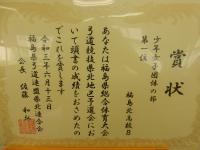 賞状
少年女子団体の部
第一位
福島北高校B
あなたは福島県総合体育大会
弓道競技県北地区予選会にお
いて頭書の成績をおさめたの
でこれを賞します
令和三年六月十三日
福島県弓道連盟県北連合会
会長 佐藤和